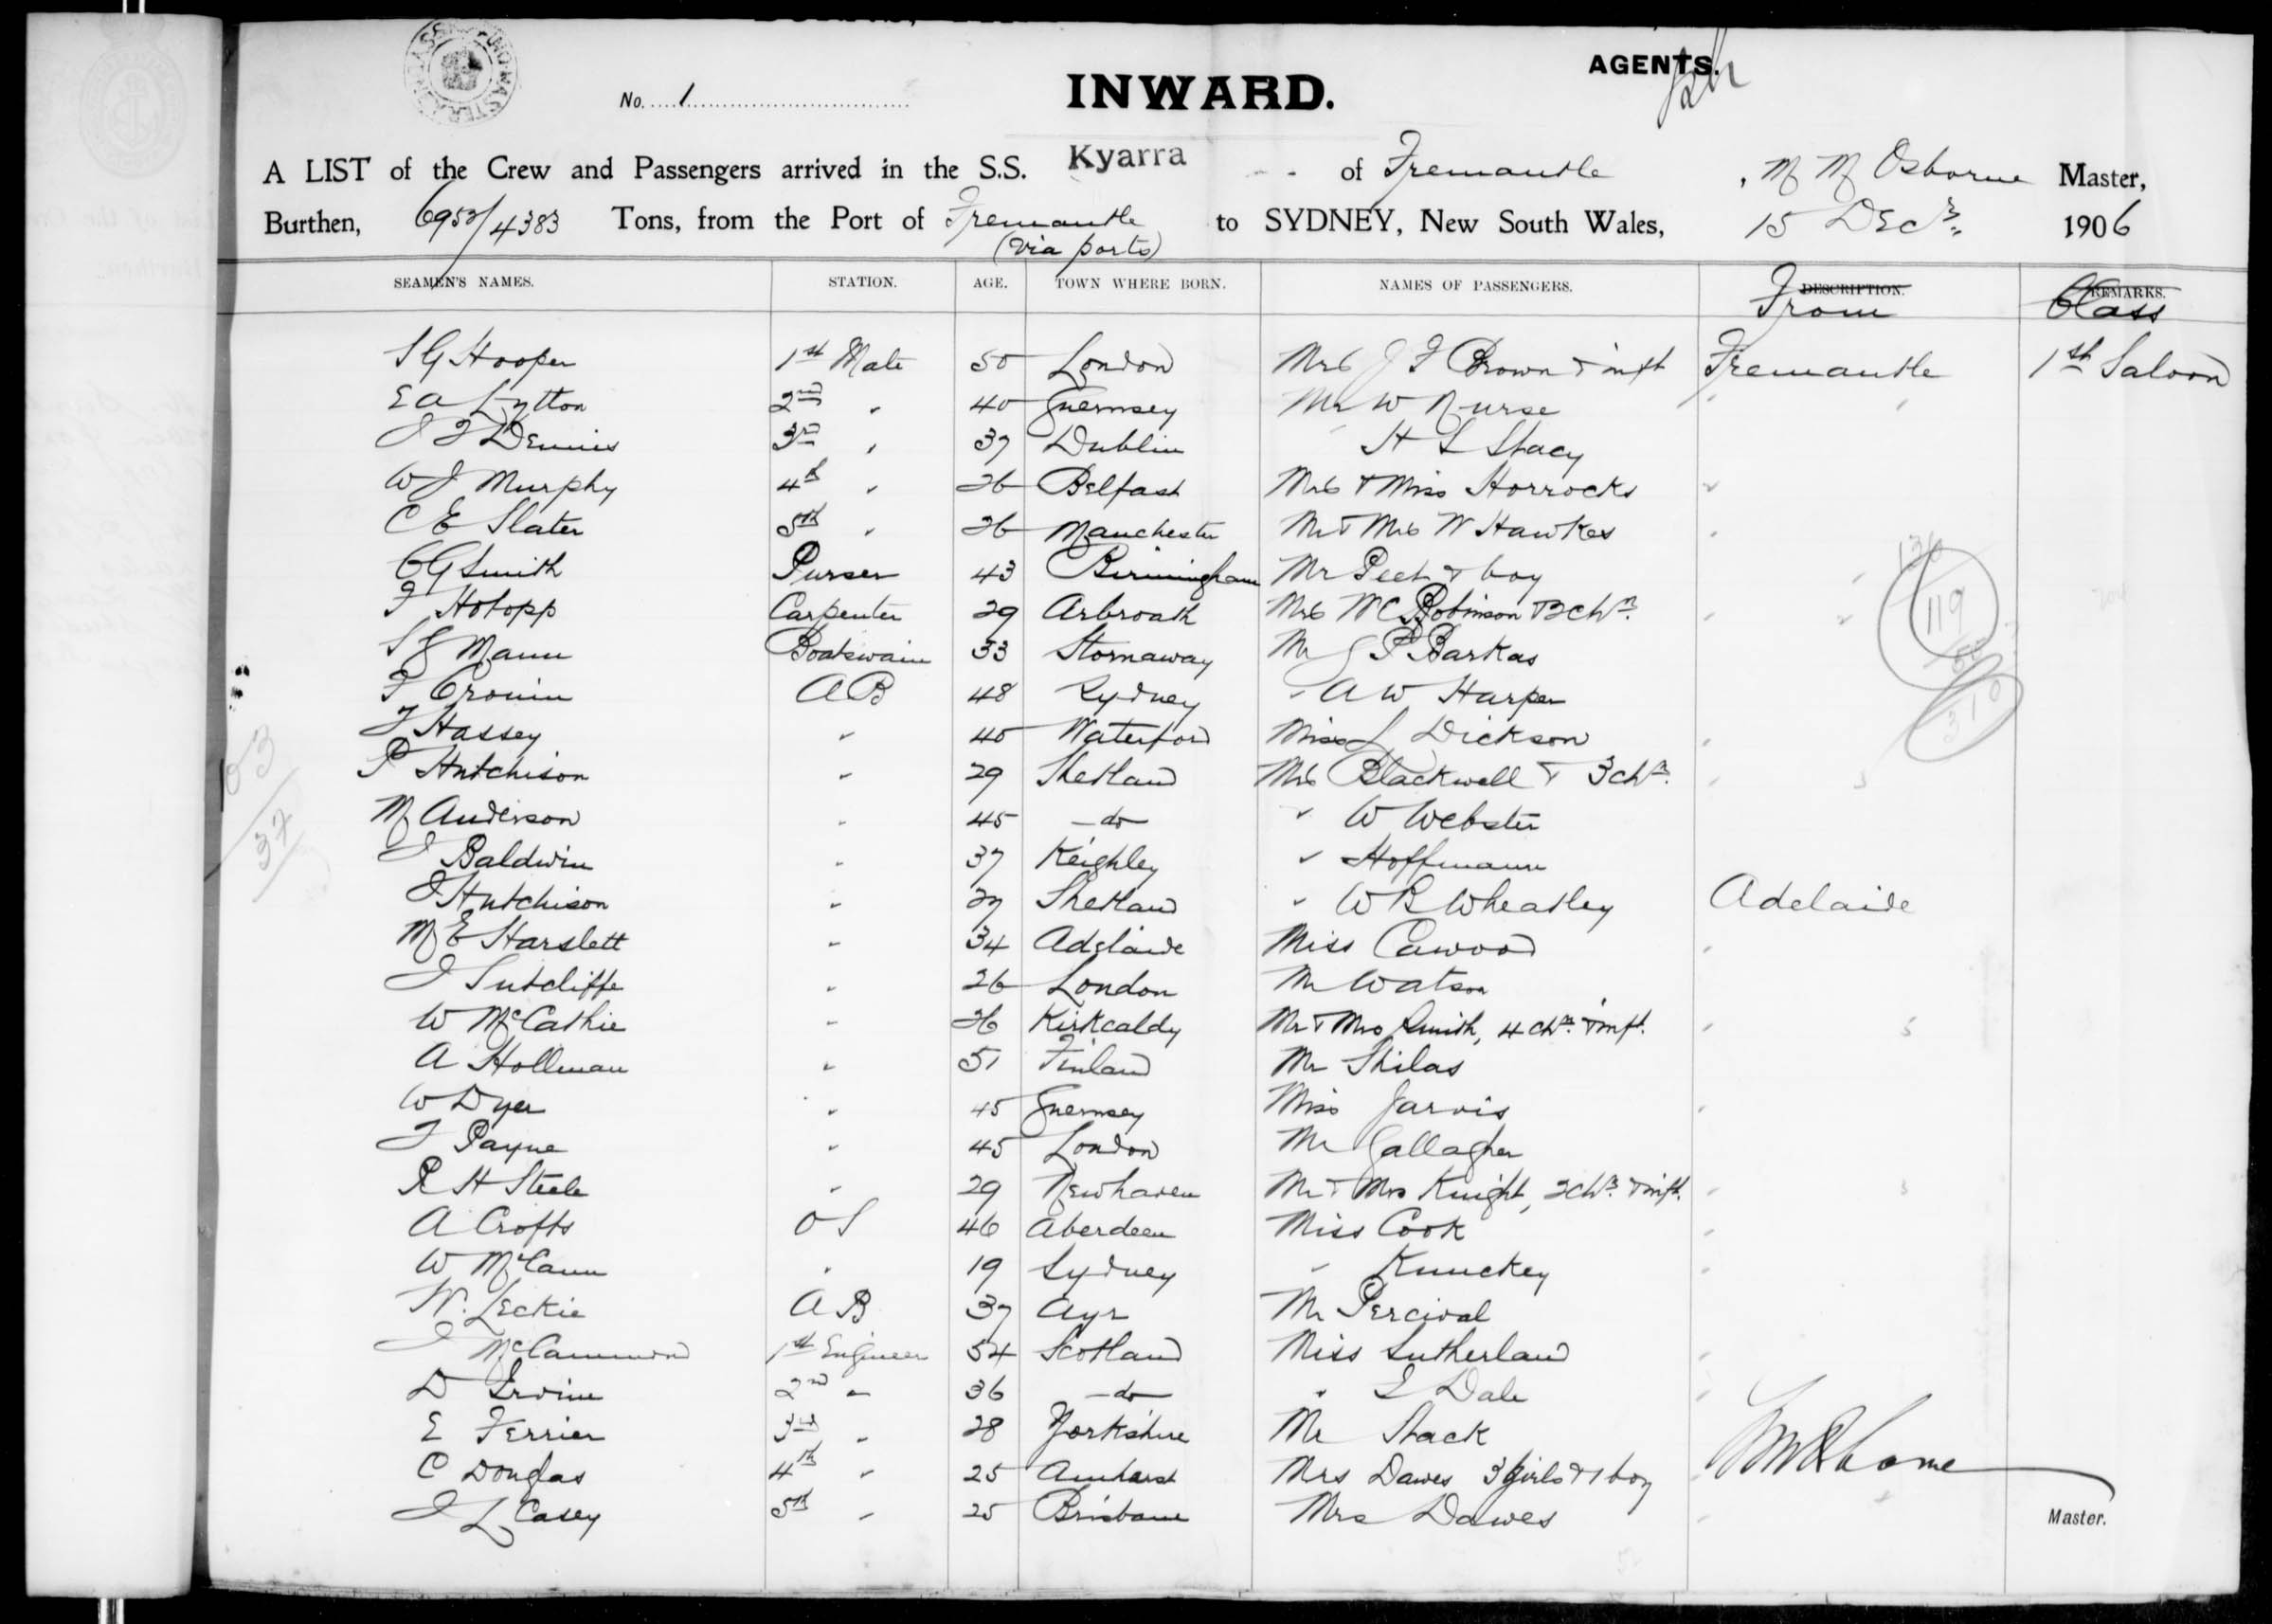 AGENTS.
No. 1
INWARD.
A LIST of the Crew and Passengers arrived in the S.S. Kyarra of Fremantle, M M Osborne Master,
Burthen, 6953/4383 Tons, from the Port of Fremantle to SYDNEY, New South Wales, 15 Decr. 1906
(via ports)
SEAMEN'S NAMES. STATION. AGE. TOWN WHERE BORN. NAMES OF PASSENGERS. DESCRIPTION. REMARKS.
From Class
S G Hooper 1st Mate 50 London Mrs J F Brown & inft Fremantle 1st Saloon
E A Lytton 2nd " 40 Guernsey Mr W Nurse "
J F Dennis 3rd " 37 Dublin H L Stacy
W J Murphy 4th " 26 Belfast Mrs & Miss Horrocks "
C E Slater 5th " 26 Manchester Mr & Mrs W Hawkes "
C G Smith Purser 43 Birmingham Mr Peet & boy "
F Hotopp Carpenter 29 Arbroath Mrs W C Robinson & 2 chn. "
S J Mann Boatswain 33 Stornaway Mr J P Barkas
F Cronin A B 48 Sydney " A W Harper
J Hassey " 40 Waterford Miss L Dickson "
P Hutchison " 29 Shetland Mrs Blackwell & 3 chn. "
M Anderson " 45 -do- " W Webster
J Baldwin " 37 Keighley " Hoffmann
J Hutchison " 27 Shetland " W R Wheatley Adelaide
M E Harslett " 34 Adelaide Miss Cawood "
J Sutcliffe " 26 London Mr Watson
W McCathie " 26 Kirkcaldy Mr & Mrs Smith, 4 chn. & inft. "
A Hollman " 51 Finland Mr Shilas
W Dyer " 45 Guernsey Miss Jarvis "
F Payne " 45 London Mr Gallagher
R H Steele " 29 Newhaven Mr & Mrs Knight, 2 chn. & inft. "
A Crofts O S 46 Aberdeen Miss Cook "
W McCann " 19 Sydney " Knuckey "
W. Leckie A B 37 Ayr Mr Percival
J McCammond 1st Engineer 54 Scotland Miss Sutherland "
D Irvine 2nd " 36 -do- " L Dale "
E Ferrier 3rd " 28 Yorkshire Mr Stack
C Douglas 4th " 25 Amherst Mrs Dawes 3 girls & 1 boy "
J L Casey 5th " 25 Brisbane Mrs Dawes "
Master.
119
310
37